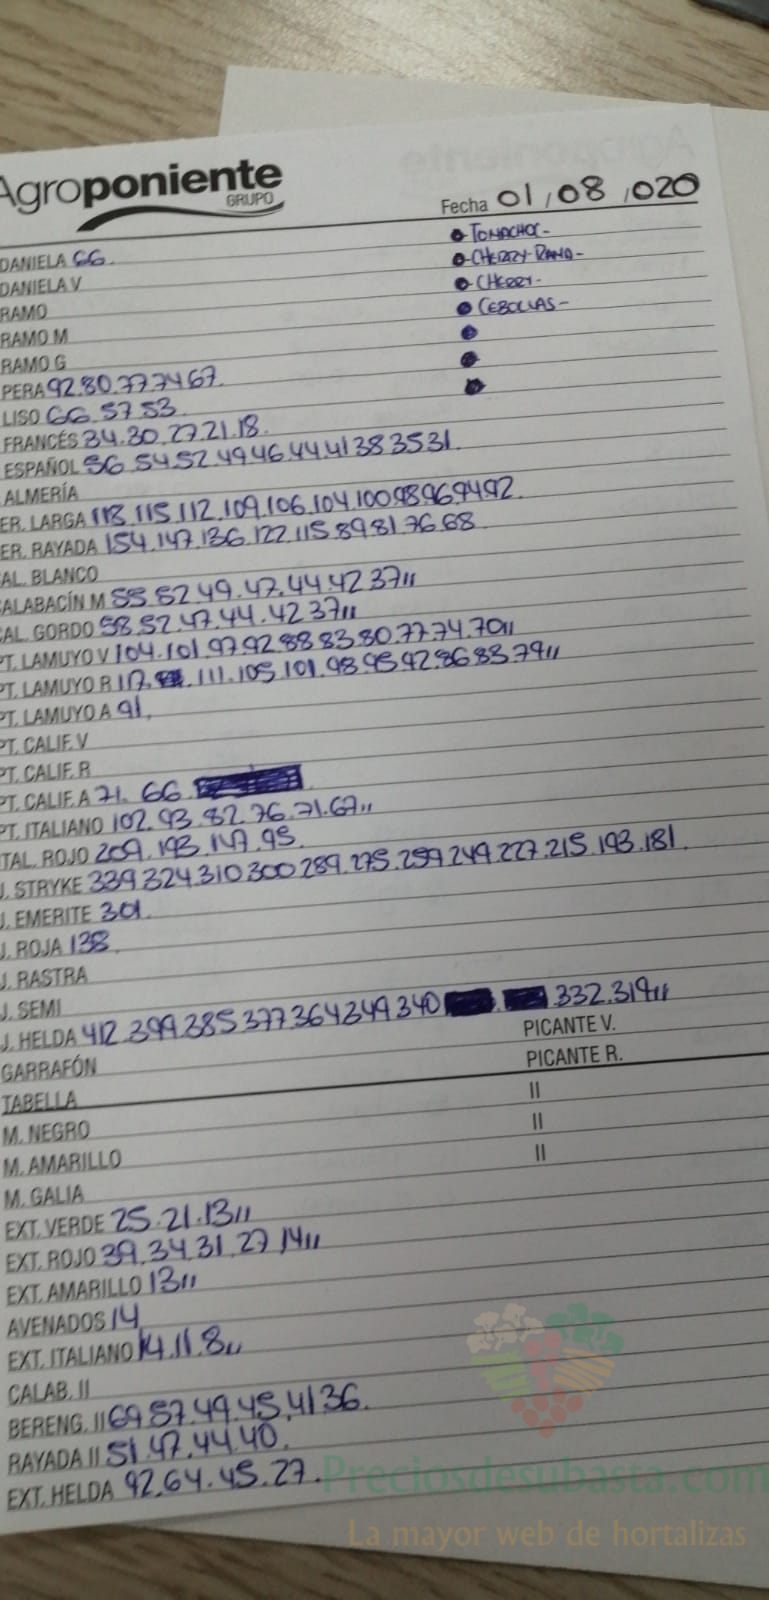 Agroponiente
GRUPO
Fecha 01/08/020
DANIELA 66.
• TOMACHOC-
DANIELA V
• CHERRY RAMO-
RAMO
• CHERRY-
RAMO M
• CEBOLLAS-
RAMO G
PERA 92.80.77.74 67.
LISO 66.57.53.
FRANCÉS 34.30.27.21.18.
ESPAÑOL 56.54.52.49.46.44.41 38 35 31.
ALMERÍA
ER. LARGA 118.115.112.109.106.104.100 98 96 94 92.
ER. RAYADA 154.147.136.122.115.89 81 76 68
AL. BLANCO
ALABACÍN M 55.52 49.47.44.42 37,,
AL. GORDO 58.52.47.44.42 37,,
PT. LAMUYO V 104.101.97.92 88 83.80.77.74.70,,
PT. LAMUYO R 117. 111.105.101.98.95 92.86 83.79,,
PT. LAMUYO A 91.
PT. CALIF. V
PT. CALIF. R
PT. CALIF. A 71. 66.
PT. ITALIANO 102.93.82.76.71.67,,
TAL. ROJO 209.193.147.95.
J. STRYKE 339 324.310 300 289.275.259 249.227.215.193.181.
J. EMERITE 301.
J. ROJA 138.
J. RASTRA
J. SEMI
J. HELDA 412.399.385 377 364 349 340 332.319,,
GARRAFÓN
PICANTE V.
TABELLA
PICANTE R.
M. NEGRO
II
M. AMARILLO
II
M. GALIA
II
EXT. VERDE 25.21.13,,
EXT. ROJO 39.34.31.27.14,,
EXT. AMARILLO 13,,
AVENADOS 14
EXT. ITALIANO 14.11.8,,
CALAB. II
BERENG. II 69 57.49.45.41 36.
RAYADA II 51.47.44.40.
EXT. HELDA 92.64.45.27.
Preciosdesubasta.com
La mayor web de hortalizas